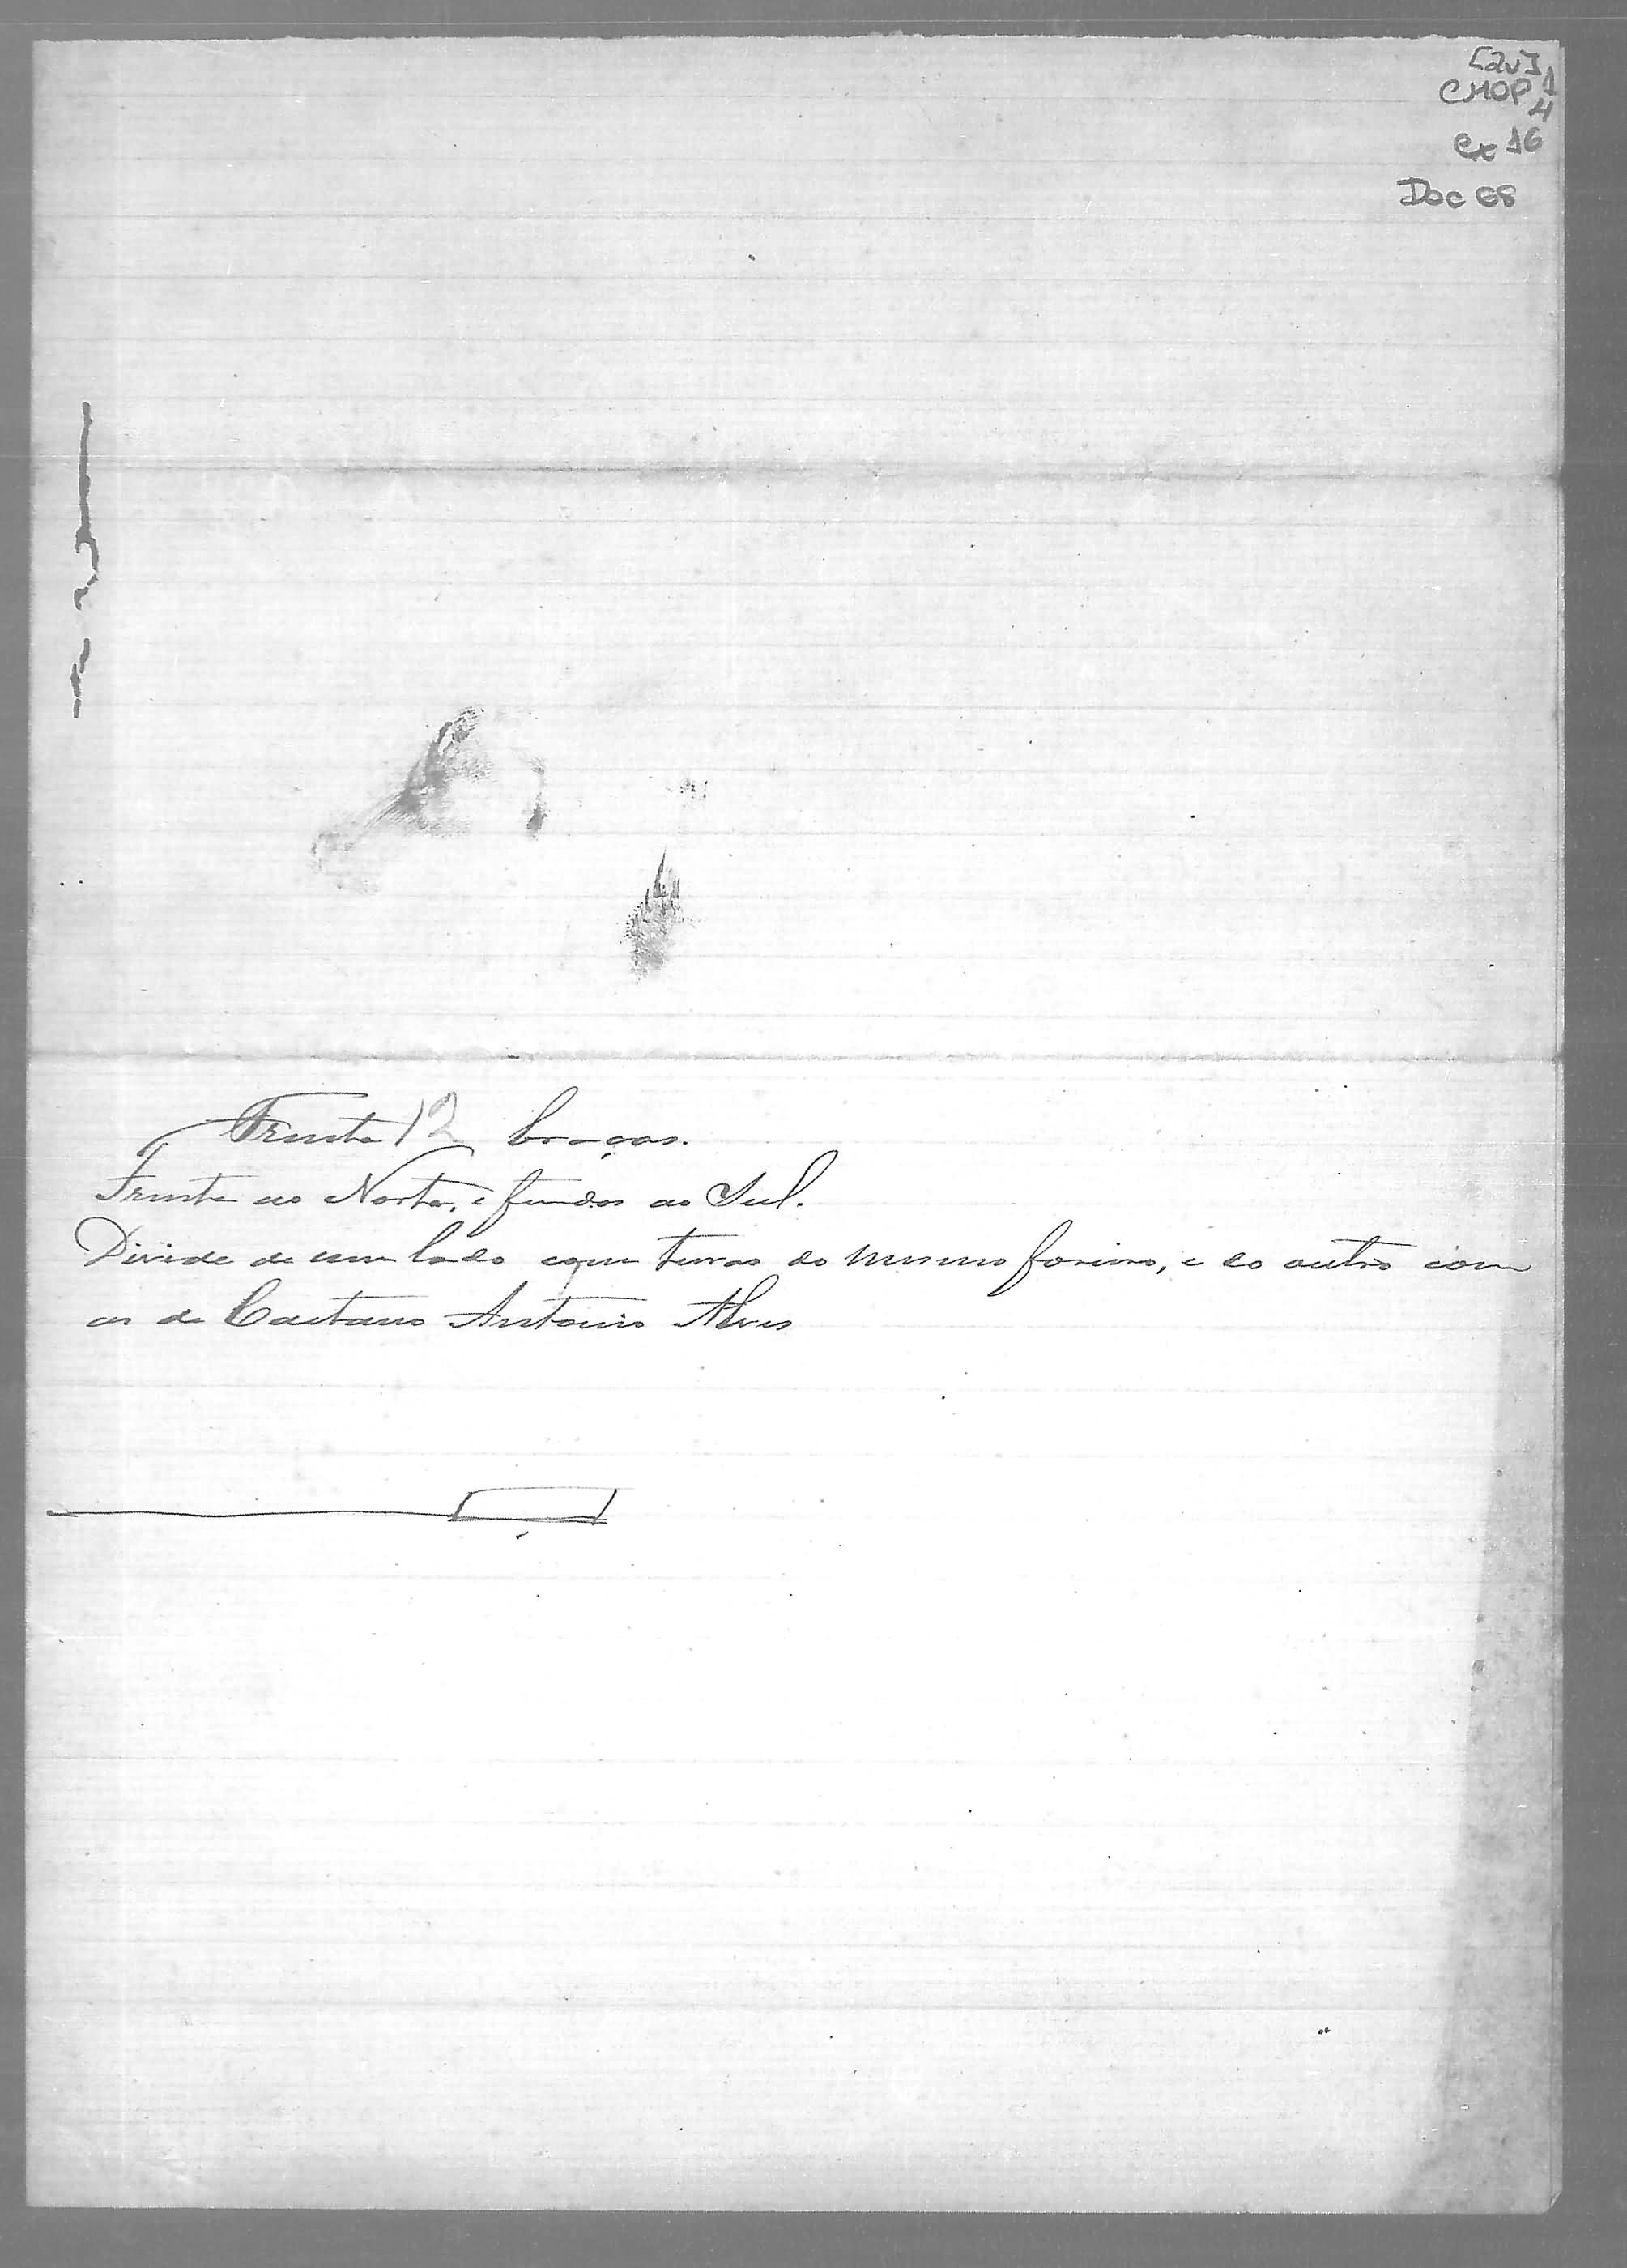 [2v]
CMOP 1
4
Cx 16
Doc 68
Frente 12 braças.
Frente ao Norte, e fundos ao Sul.
Divide de um lado com terras do mesmo foreiro, e do outro com
as de Caetano Antonio Alves